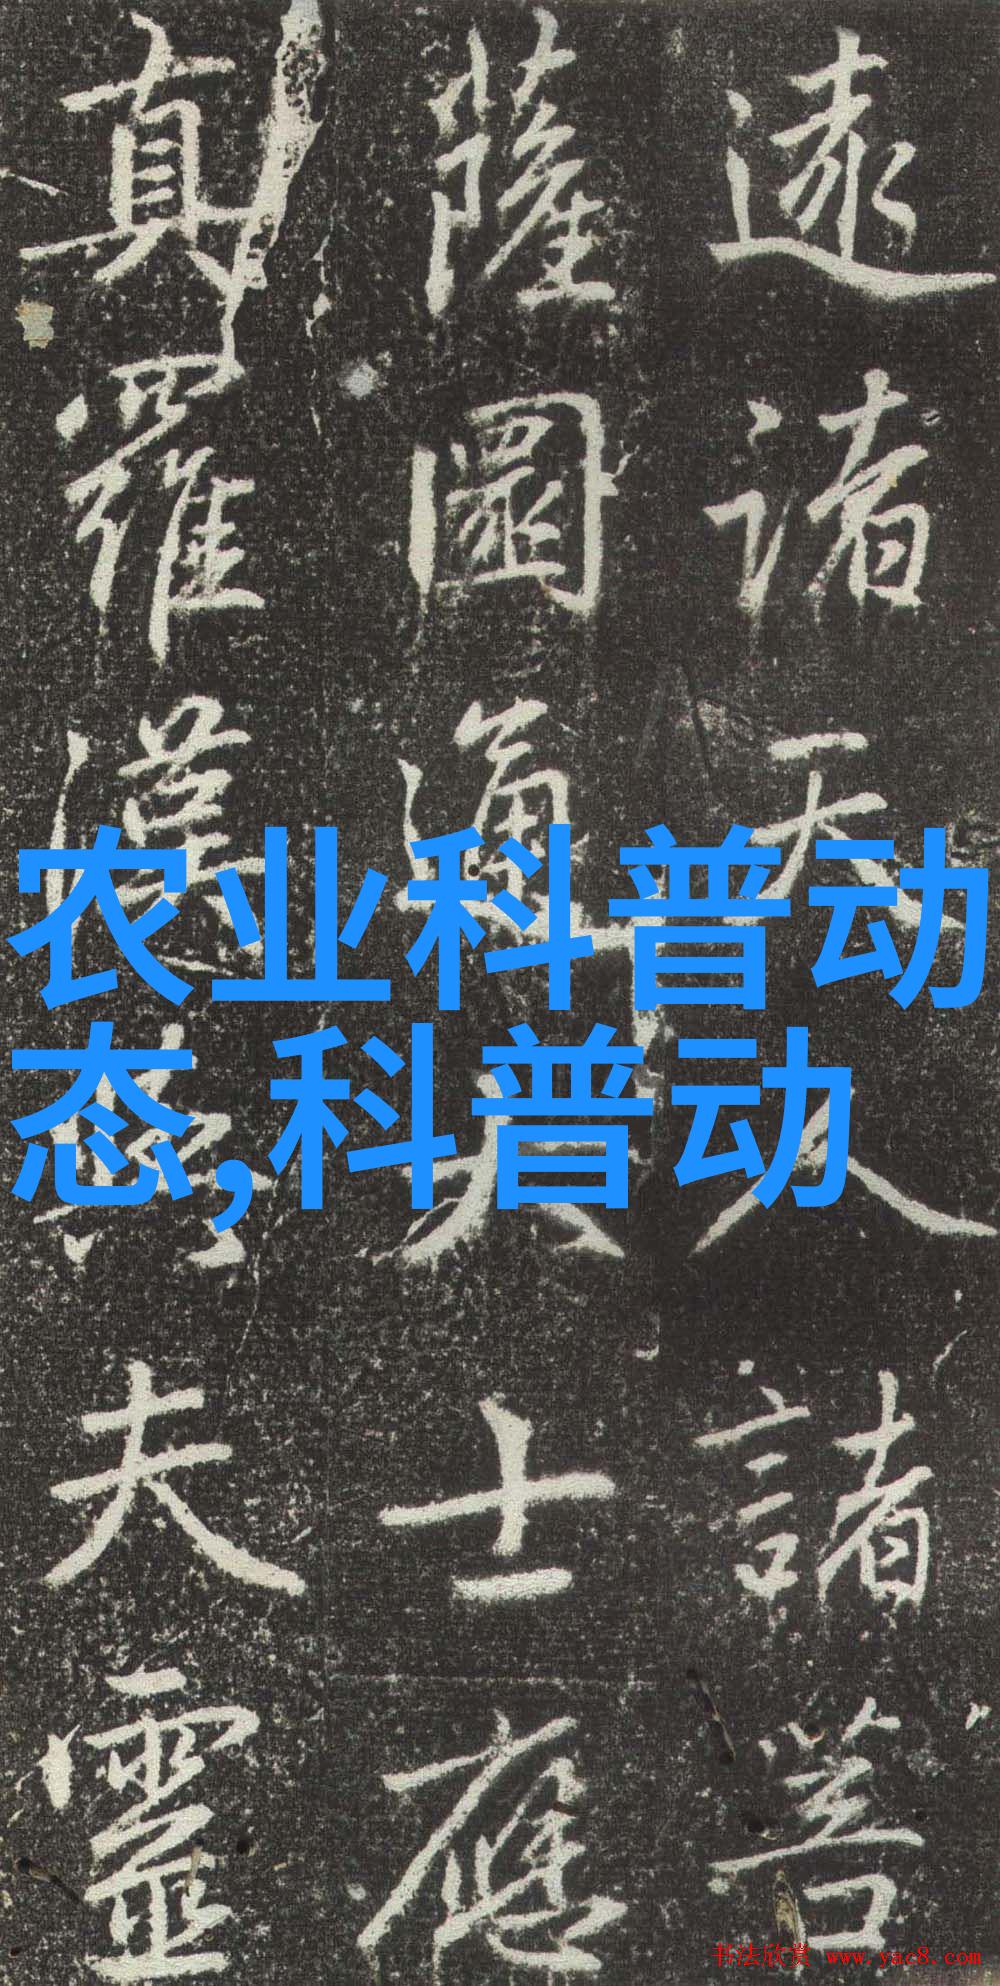 农业科普动
态,科普动
諸天人諸菩
薩圓通大士應
真羅漢與夫靈
书法欣赏 www.yac8.com